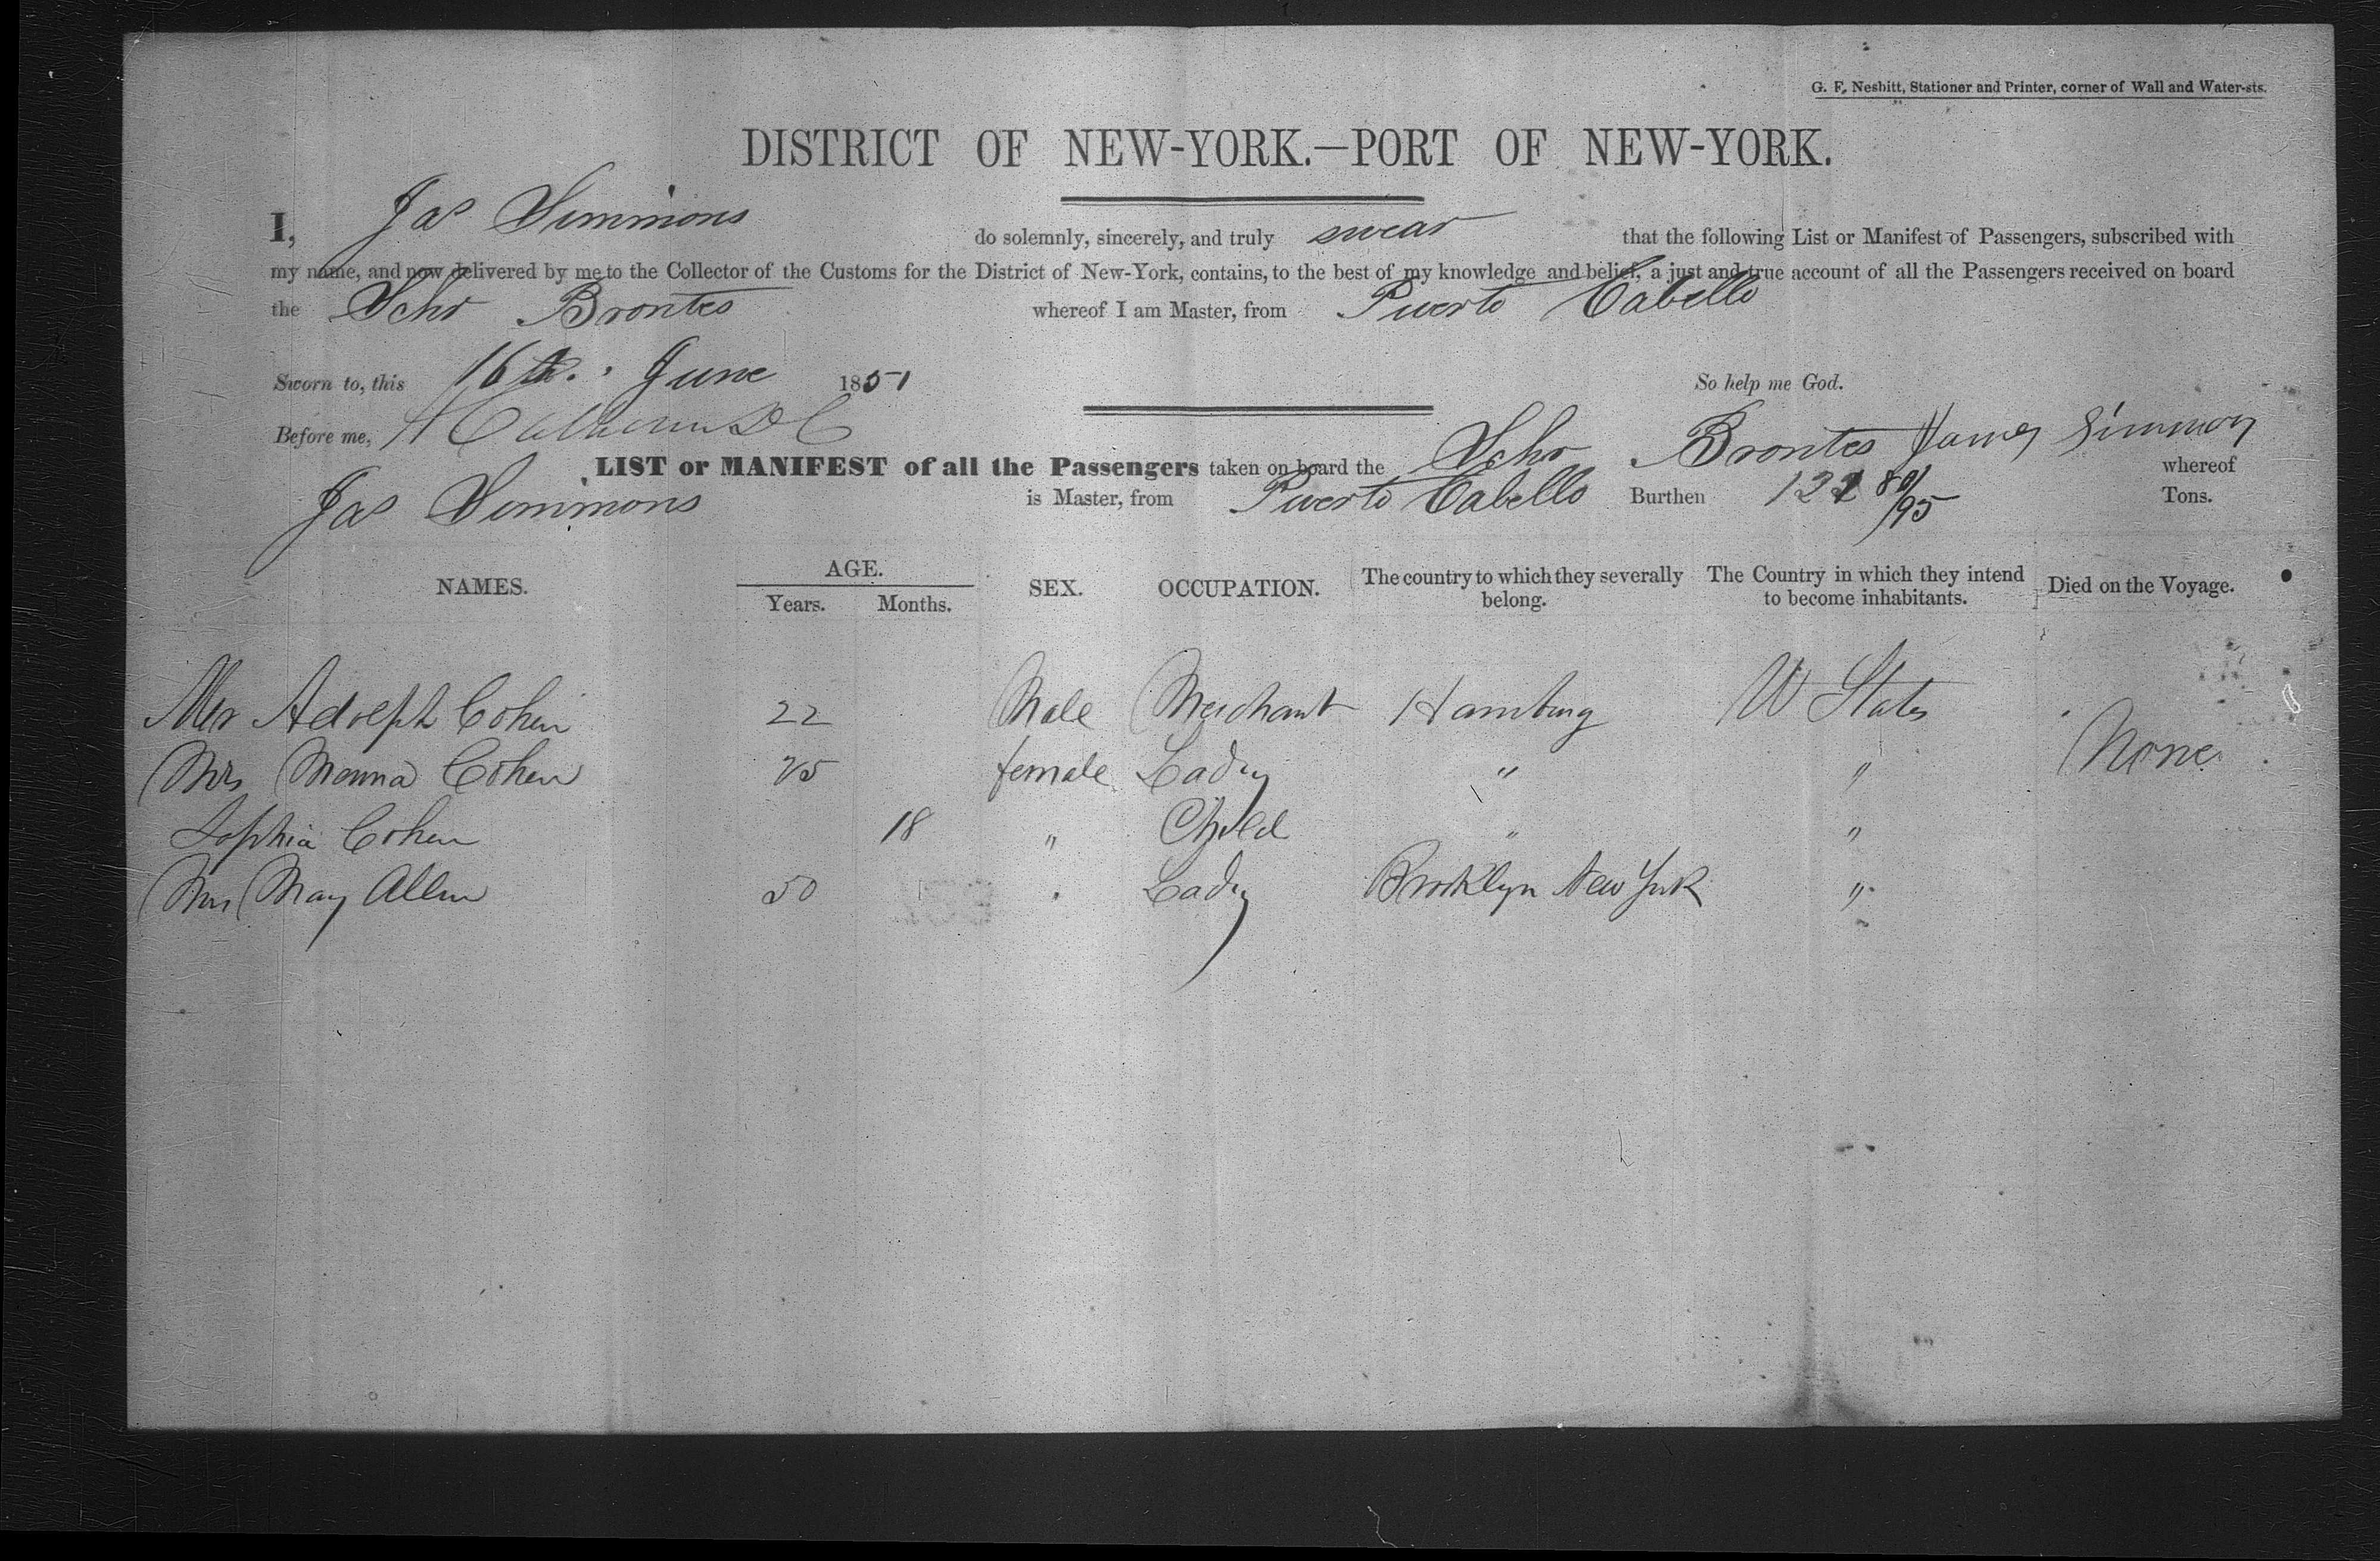 G. F. Nesbitt, Stationer and Printer, corner of Wall and Water-sts.
DISTRICT OF NEW-YORK.—PORT OF NEW-YORK.
I, Jas Simmons do solemnly, sincerely, and truly swear that the following List or Manifest of Passengers, subscribed with
my name, and now delivered by me to the Collector of the Customs for the District of New-York, contains, to the best of my knowledge and belief, a just and true account of all the Passengers received on board
the Schr Brontes whereof I am Master, from Puerto Cabello
Sworn to, this 16th June 1851 So help me God.
Before me,
James Simmons
LIST or MANIFEST of all the Passengers taken on board the Schr Brontes whereof
Jas Simmons is Master, from Puerto Cabello Burthen Tons.
NAMES. AGE. SEX. OCCUPATION. The country to which they severally belong. The Country in which they intend to become inhabitants. Died on the Voyage.
Years. Months.
Mr Adolph Cohen 22 Male Merchant Hamburg U States
Mrs Cohen 25 female Lady " " None
Sophia Cohen 18 " Child " "
Mrs May Allen 50 Lady Brooklyn New York "